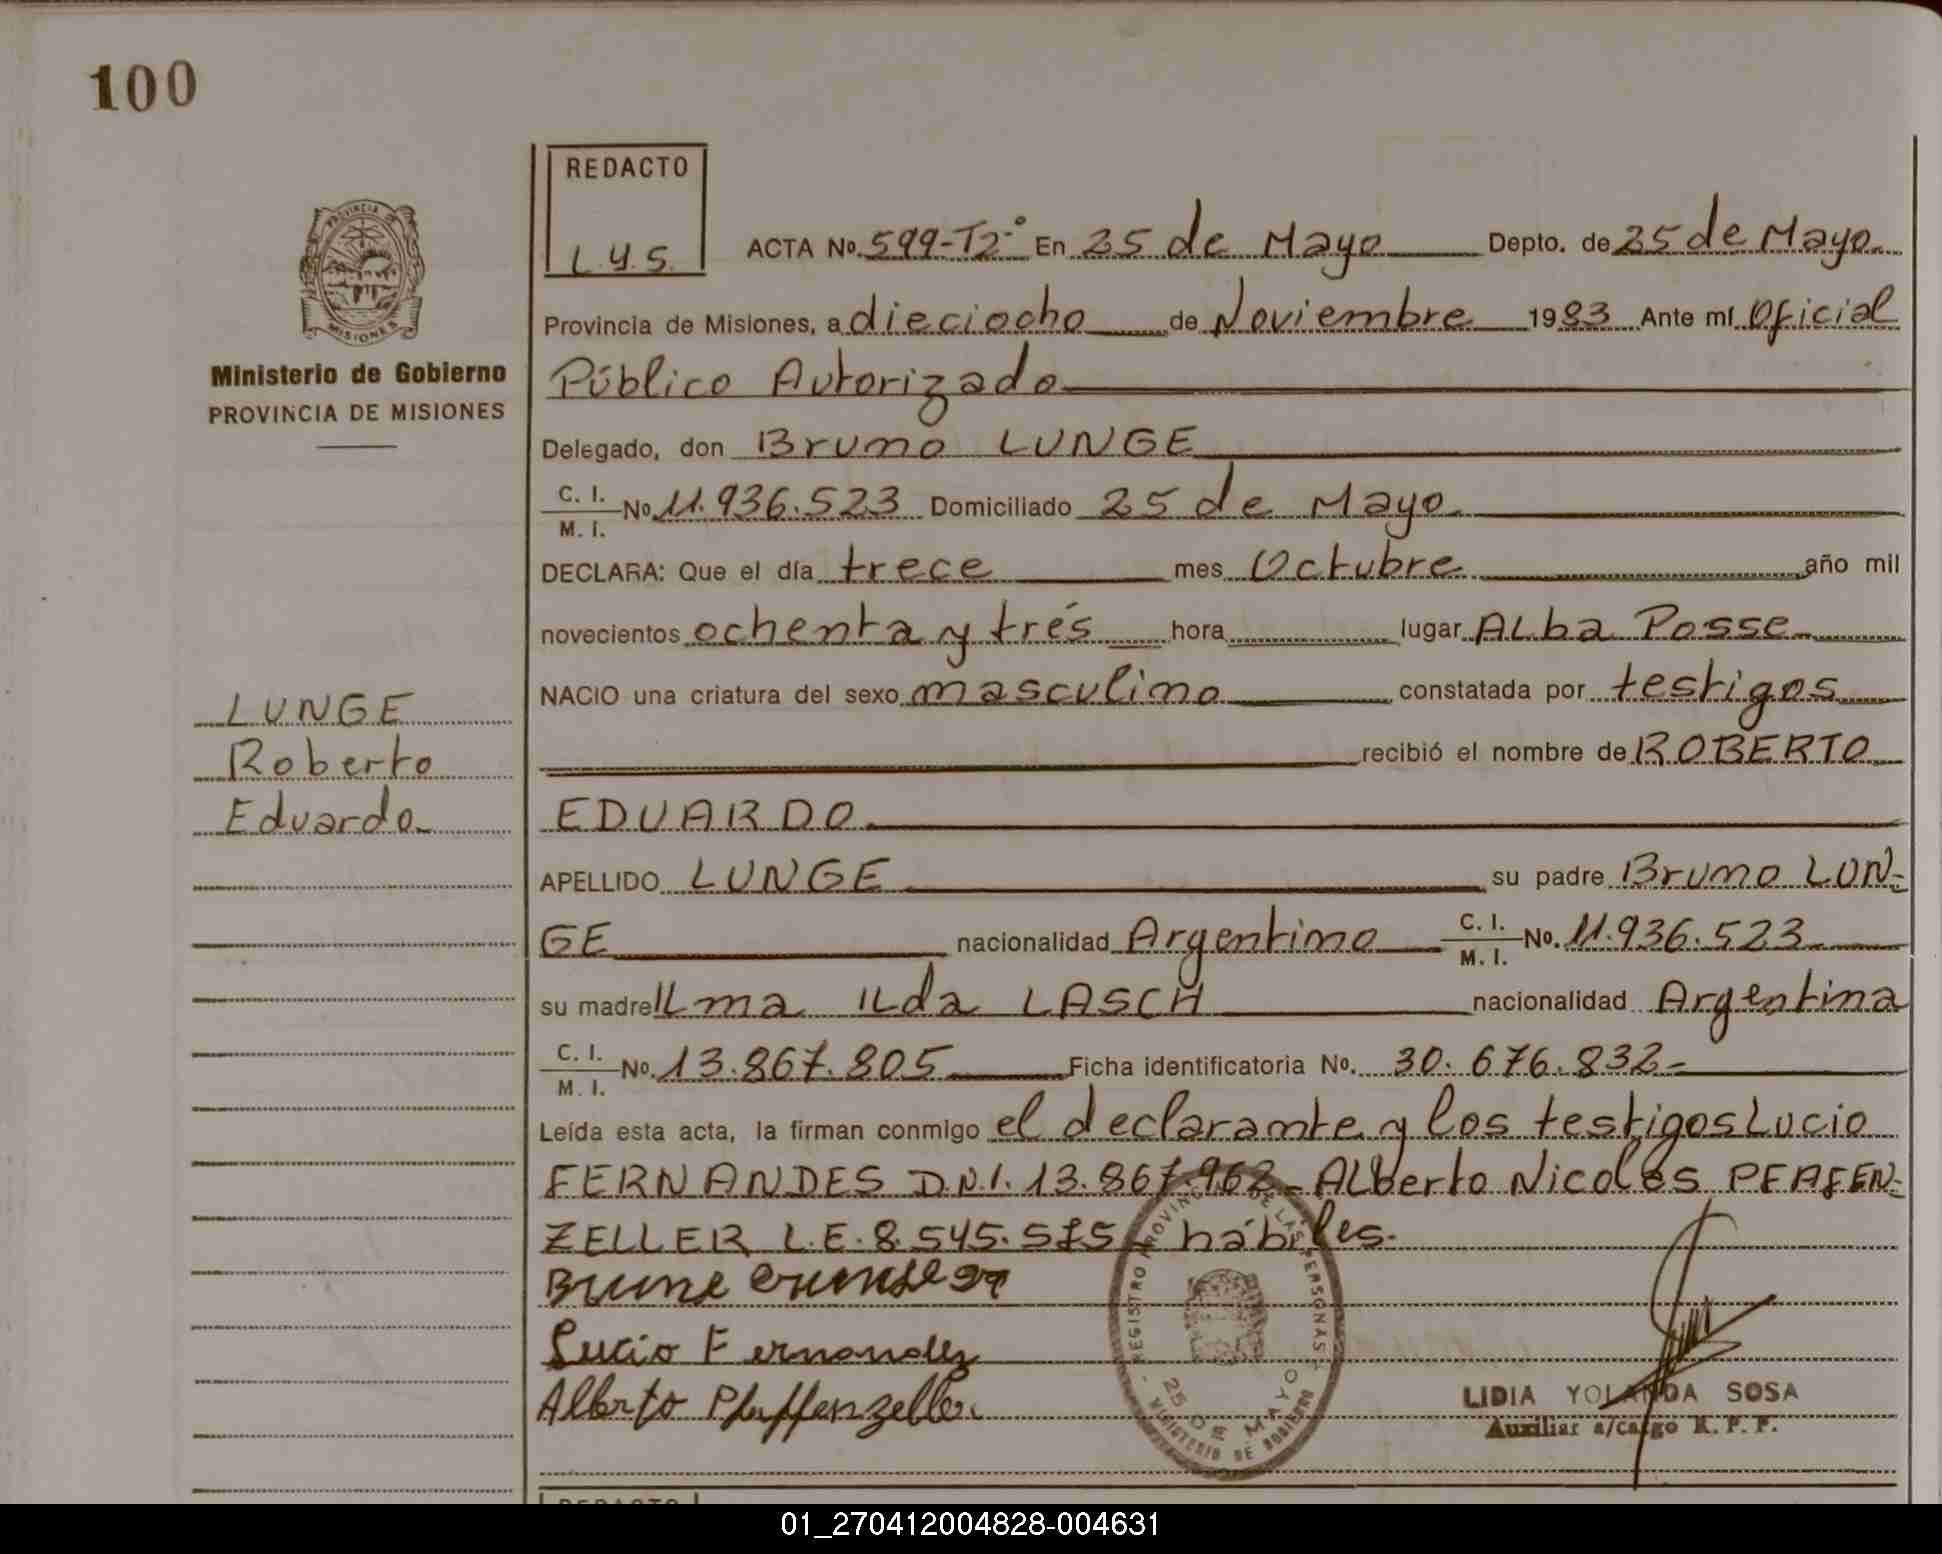 100
REDACTO
L.Y.S.
PROVINCIA DE
MISIONES
Ministerio de Gobierno
PROVINCIA DE MISIONES
ACTA No. 599-T2-° En 25 de Mayo Depto. de 25 de Mayo
Provincia de Misiones, a dieciocho de Noviembre 1983 Ante mí Oficial
Público Autorizado
Delegado, don Bruno LUNGE
C. I. / M. I. No 11.936.523 Domiciliado 25 de Mayo
DECLARA: Que el día trece mes Octubre año mil
novecientos ochenta y trés hora lugar ALba Posse
NACIO una criatura del sexo masculino constatada por testigos
recibió el nombre de ROBERTO
EDUARDO
LUNGE
Roberto
Eduardo
APELLIDO LUNGE su padre Bruno LUN-
GE nacionalidad Argentino C. I. / M. I. No. 11.936.523
su madre ILma ILda LASCH nacionalidad Argentina
C. I. / M. I. No. 13.867.805 Ficha identificatoria No. 30.676.832-
Leída esta acta, la firman conmigo el declarante y los testigos Lucio
FERNANDES D.N.I. 13.867.962- ALberto Nicolás PFAFEN-
ZELLER L.E. 8.545.515 hábiles.
Lucio Fernandez
Alberto Pfaffenzeller
REGISTRO PROVINCIAL DE LAS PERSONAS
25 DE MAYO
MINISTERIO DE GOBIERNO
LIDIA YOLANDA SOSA
Auxiliar a/cargo R. P. P.
REDACTO
01_270412004828-004631